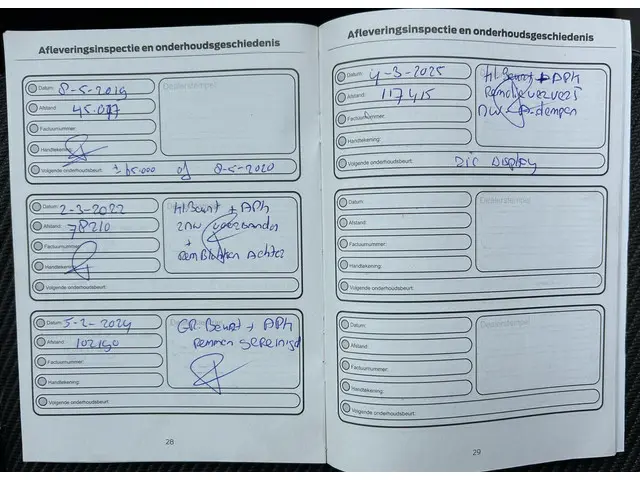 Afleveringsinspectie en onderhoudsgeschiedenis
Datum: 8-5-2019
Afstand: 45.077
Factuurnummer:
Handtekening:
Dealerstempel
Volgende onderhoudsbeurt: of 8-5-2020
Datum: 2-3-2022
Afstand: 78210
Factuurnummer:
Handtekening:
Volgende onderhoudsbeurt:
Kl Beurt + APK
2 Nw
+
RemBlokken Achter
Datum: 5-2-2024
Afstand: 102190
Factuurnummer:
Handtekening:
Volgende onderhoudsbeurt:
GR. Beurt + APK
Remmen gereinigd
28
Afleveringsinspectie en onderhoudsgeschiedenis
Datum: 4-3-2025
Afstand: 117415
Factuurnummer:
Handtekening:
Kl. Beurt + APK
Remolie ververst
Volgende onderhoudsbeurt: Zie Display
Datum:
Afstand:
Factuurnummer:
Handtekening:
Dealerstempel
Volgende onderhoudsbeurt:
Datum:
Afstand:
Factuurnummer:
Handtekening:
Dealerstempel
Volgende onderhoudsbeurt:
29